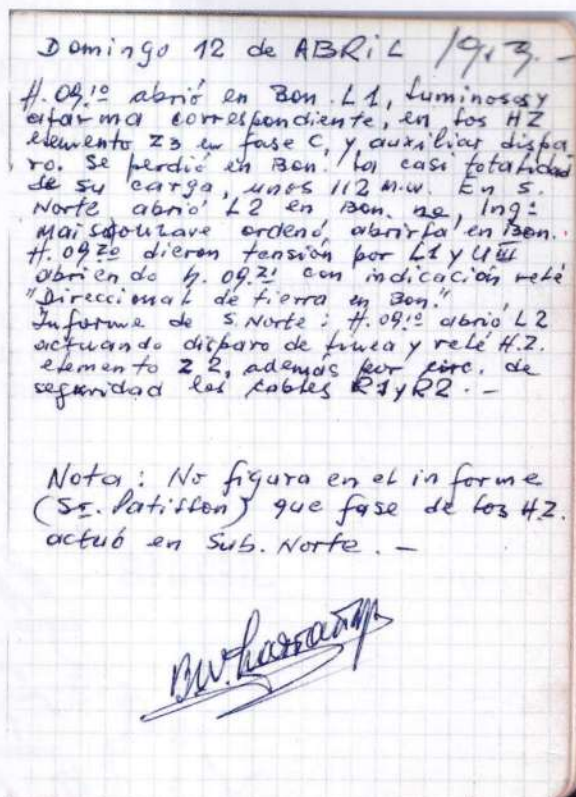 Domingo 12 de ABRIL
H. 09.10 abrió en Bon. L1, Luminosos y
alarma correspondiente, en los HZ
elemento Z3 en fase C, y auxiliar dispa
ro. Se perdió en Bon. la casi totalidad
de su carga, unos 112 M.W. En S.
Norte abrió L2 en Bon. no, Ing:
ordenó abrirla en Bon.
H. 09.20 dieron tensión por L1 y UIII
abriendo h. 09.21 con indicación relé
"Direccional de tierra en Bon."
Informe de S. Norte: H. 09.10 abrió L2
actuando disparo de línea y relé H.Z.
elemento Z 2, además por circ. de
seguridad los cables R1 y R2. -
Nota: No figura en el informe
(Sr. Patisson) que fase de los H.Z.
actuó en Sub. Norte. -